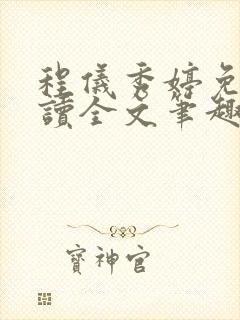 程儀秀婷免
讀全文筆趣
寶神官